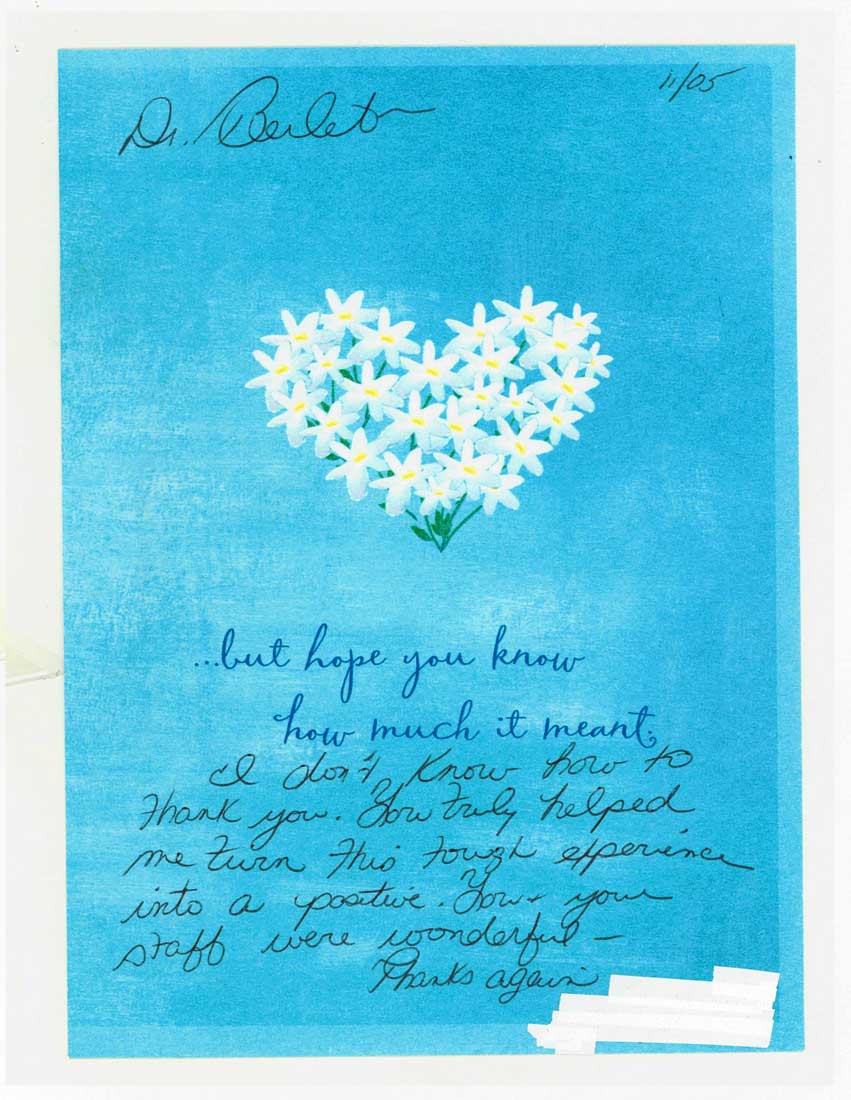 11/05
Dr.
...but hope you know
how much it meant.
I don't know how to
thank you. You truly helped
me turn this tough experience
into a positive. You + your
staff were wonderful –
Thanks again